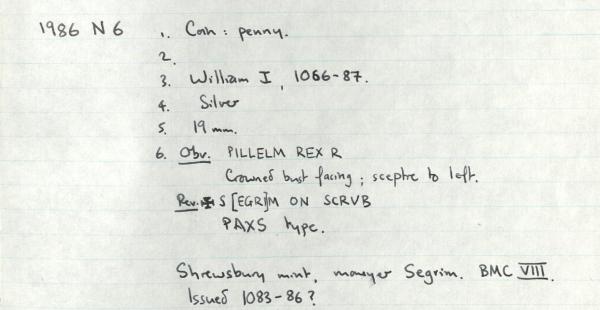 1986 N 6 1. Coin : penny.
2.
3. William I, 1066-87.
4. Silver
5. 19 mm.
6. Obv. PILLELM REX R
Crowned bust facing ; sceptre to left.
Rev. ✠ S[EGRI]M ON SCRVB
PAXS type.
Shrewsbury mint, moneyer Segrim. BMC VIII.
Issued 1083-86?